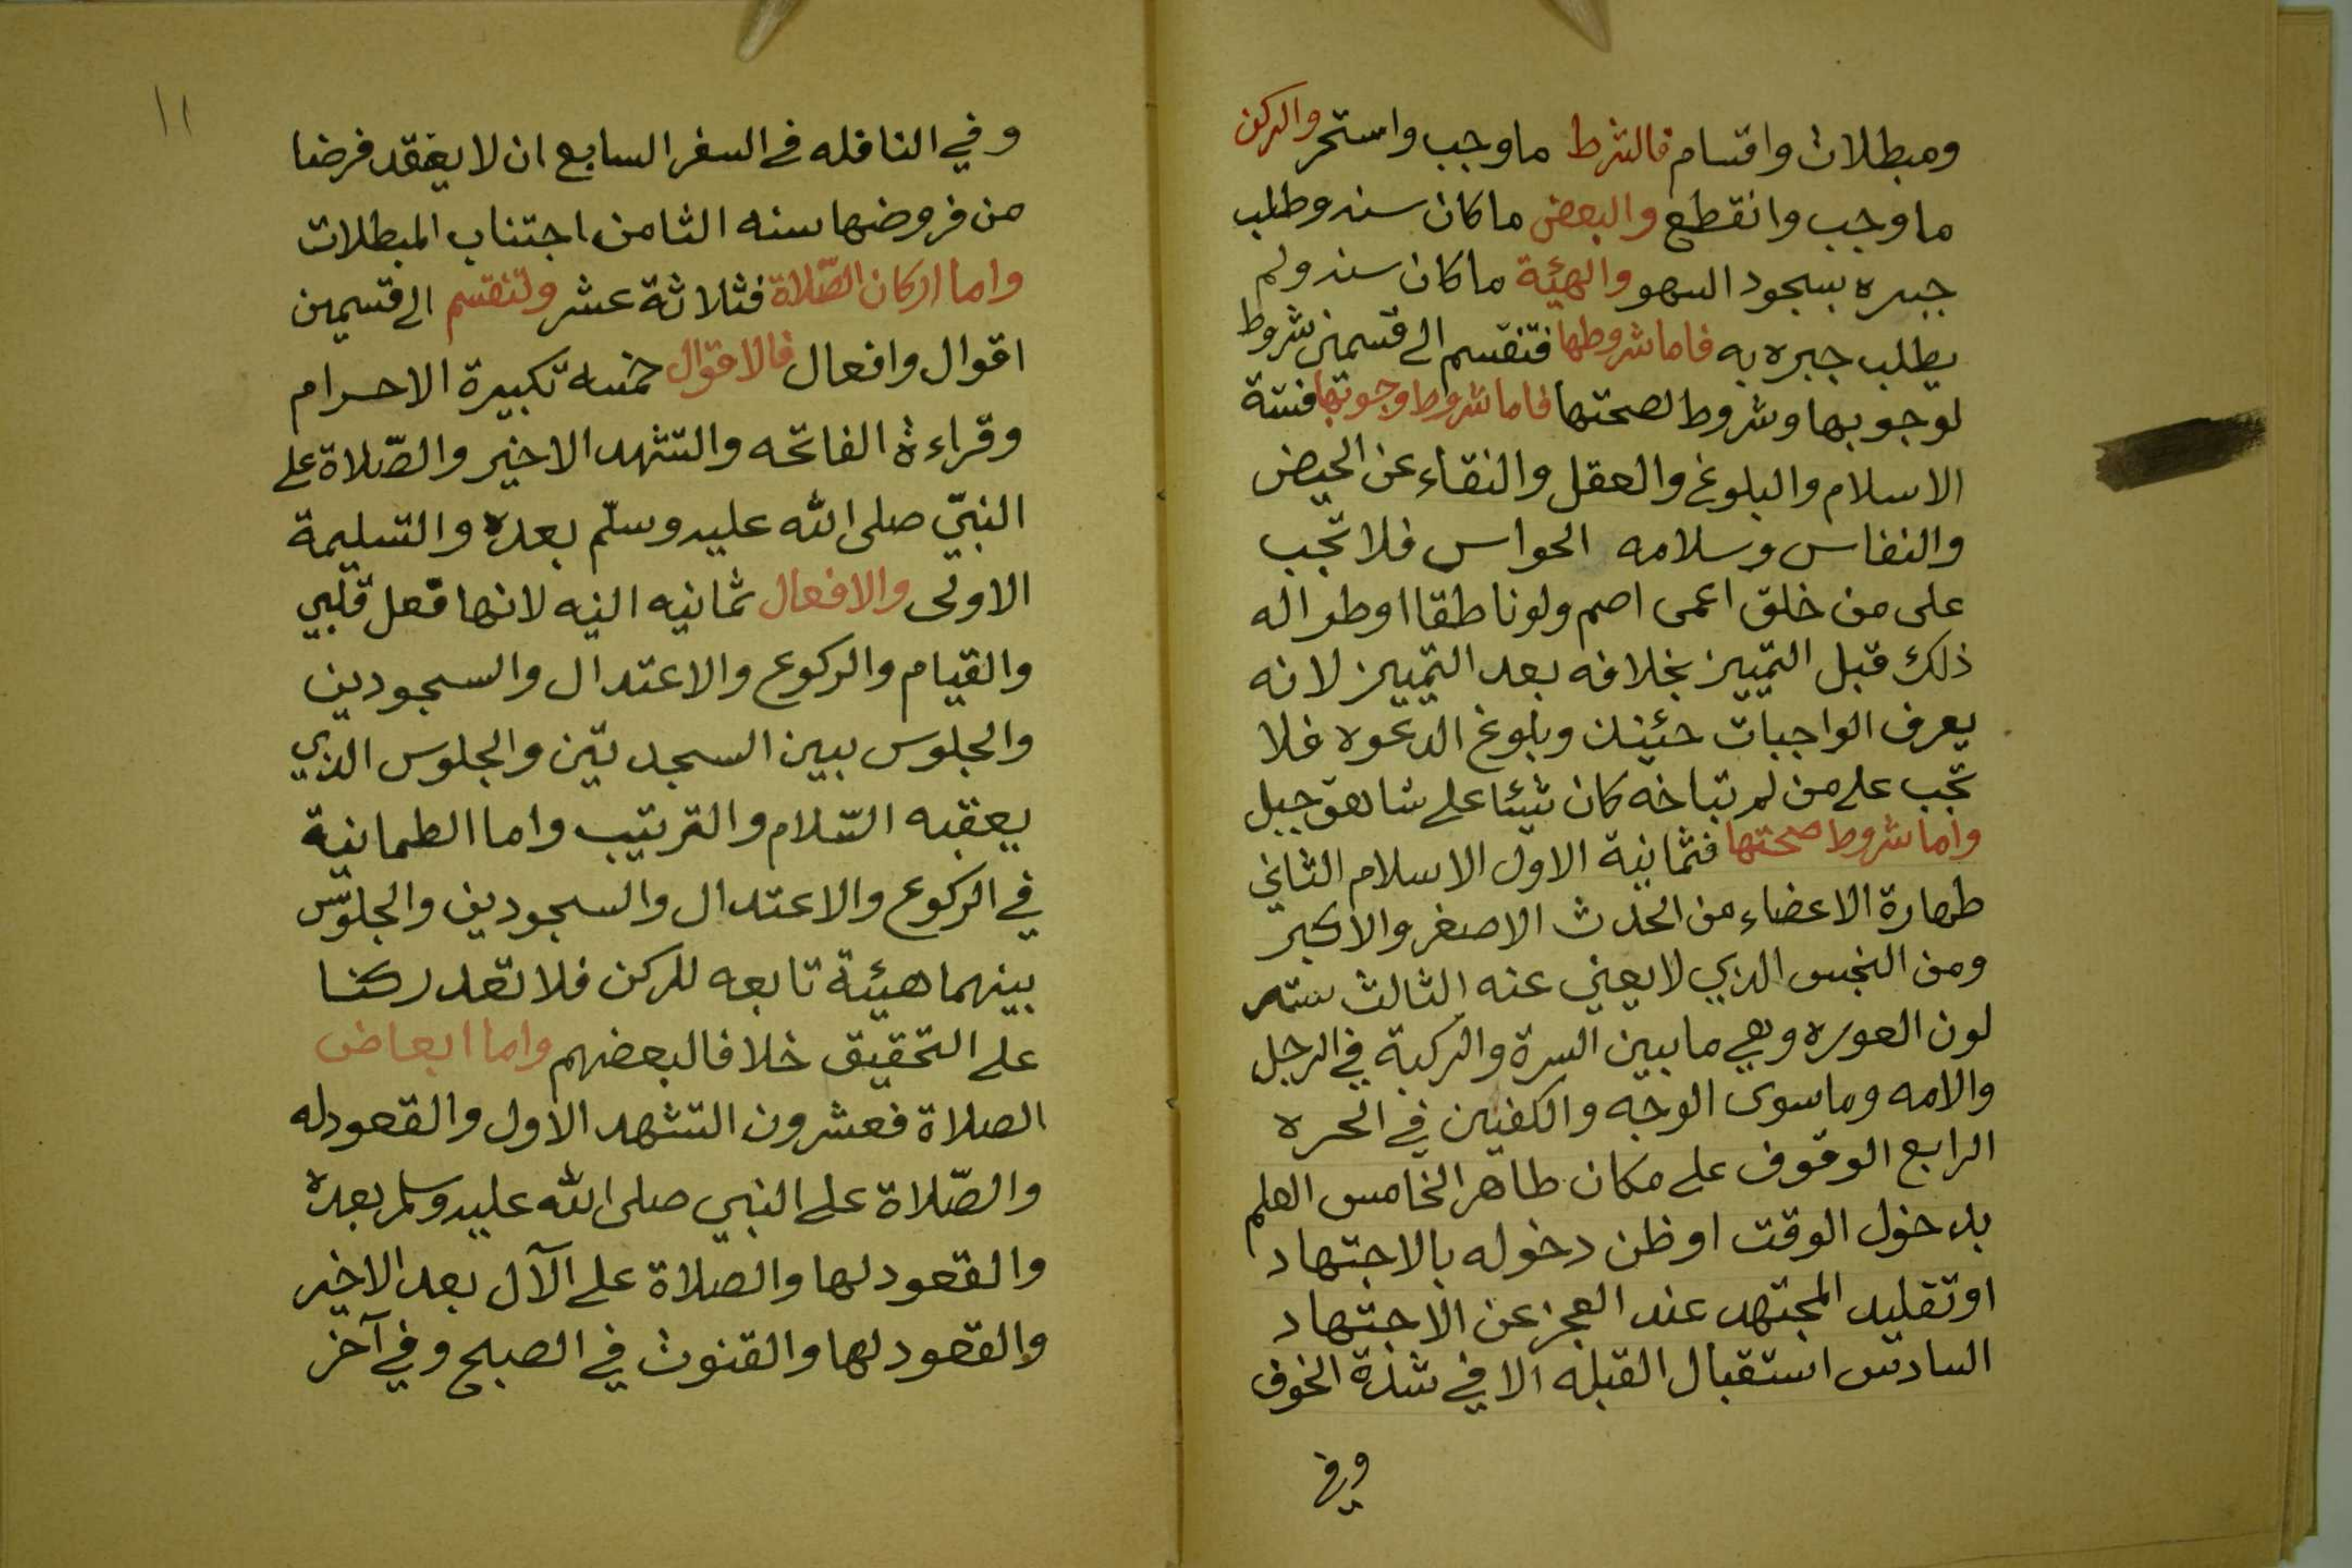 ومبطلات واقسام فالشرط ما وجب واستمر والركن
ما وجب وانقطع والبعض ما كان سنه وطلب
جبره بسجود السهو والهيئة ما كان سنه ولم
يطلب جبره به فاما شروطها فتنقسم الى قسمين شروط
لوجوبها وشروط لصحتها فاما شروط وجوبها فستة
الاسلام والبلوغ والعقل والنقاء عن الحيض
والنفاس وسلامه الحواس فلا تجب
على من خلق اعمى اصم ولو ناطقا او طرا له
ذلك قبل التمييز بخلافه بعد التمييز لانه
يعرف الواجبات حئيذ وبلوغ الدعوه فلا
تجب على من لم تبلغه كان نشئا على شاهق جبل
واما شروط صحتها فثمانية الاول الاسلام الثاني
طهارة الاعضاء من الحدث الاصغر والاكبر
ومن النجس الذي لا يعفي عنه الثالث ستر
لون العوره وهي ما بين السرة والركبة في الرجل
والامه وما سوى الوجه والكفين في الحره
الرابع الوقوف على مكان طاهر الخامس العلم
بدخول الوقت او ظن دخوله بالاجتهاد
او تقليد المجتهد عند العجز عن الاجتهاد
السادس استقبال القبله الا في شدة الخوف
وفي
١١
وفي النافله في السفر السابع ان لا يعتقد فرضا
من فروضها سنه الثامن اجتناب المبطلات
واما اركان الصّلاة فثلاثة عشر وتنقسم الى قسمين
اقوال وافعال فالاقوال خمسه تكبيرة الاحرام
وقراءة الفاتحه والتشهد الاخير والصّلاة على
النبيّ صلى الله عليه وسلّم بعده والتسليمة
الاولى والافعال ثمانيه النيه لانها فعل قلبي
والقيام والركوع والاعتدال والسجودين
والجلوس بين السجدتين والجلوس الذي
يعقبه السّلام والترتيب واما الطمانية
في الركوع والاعتدال والسجودين والجلوس
بينهما هيئة تابعه للركن فلا تعد ركنا
على التحقيق خلافا لبعضهم واما ابعاض
الصلاة فعشرون التشهد الاول والقعود له
والصّلاة على النبي صلى الله عليه وسلم بعده
والقعود لها والصلاة على الآل بعد الاخير
والقعود لها والقنوت في الصبح وفي آخر